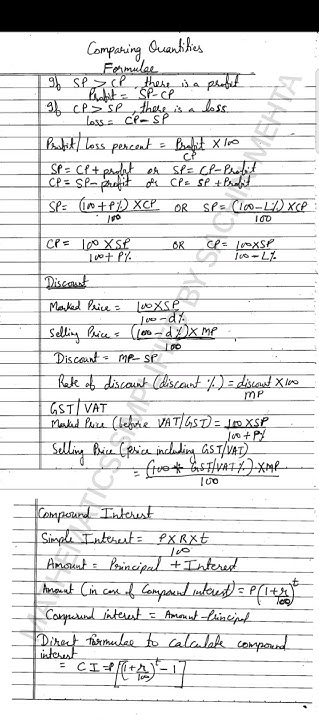 Comparing Quantities
Formulae
If SP > CP there is a profit
Profit = SP-CP
If CP > SP there is a loss
loss = CP-SP
Profit/loss percent = Profit/CP X 100
SP = CP + profit or SP = CP-Profit
CP = SP-profit or CP = SP + Profit
SP = (100+P%) X CP / 100 OR SP = (100-L%) X CP / 100
CP = 100 X SP / 100+P% OR CP = 100XSP / 100-L%
Discount
Marked Price = 100XSP / 100-d%
Selling Price = (100-d%) X MP / 100
Discount = MP-SP
Rate of discount (discount %) = discount X 100 / MP
GST/VAT
Marked Price (before VAT/GST) = 100 XSP / 100+P%
Selling Price (price including GST/VAT)
= (100 + GST/VAT%) XMP / 100
Compound Interest
Simple Interest = PXRXt / 100
Amount = Principal + Interest
Amount (in case of Compound interest) = P(1+r/100)^t
Compound interest = Amount-Principal
Direct formulae to calculate compound
interest
= CI = P[(1+r/100)^t - 1]
MATHEMATICS SIMPLIFIED BY SACHIN MEHTA